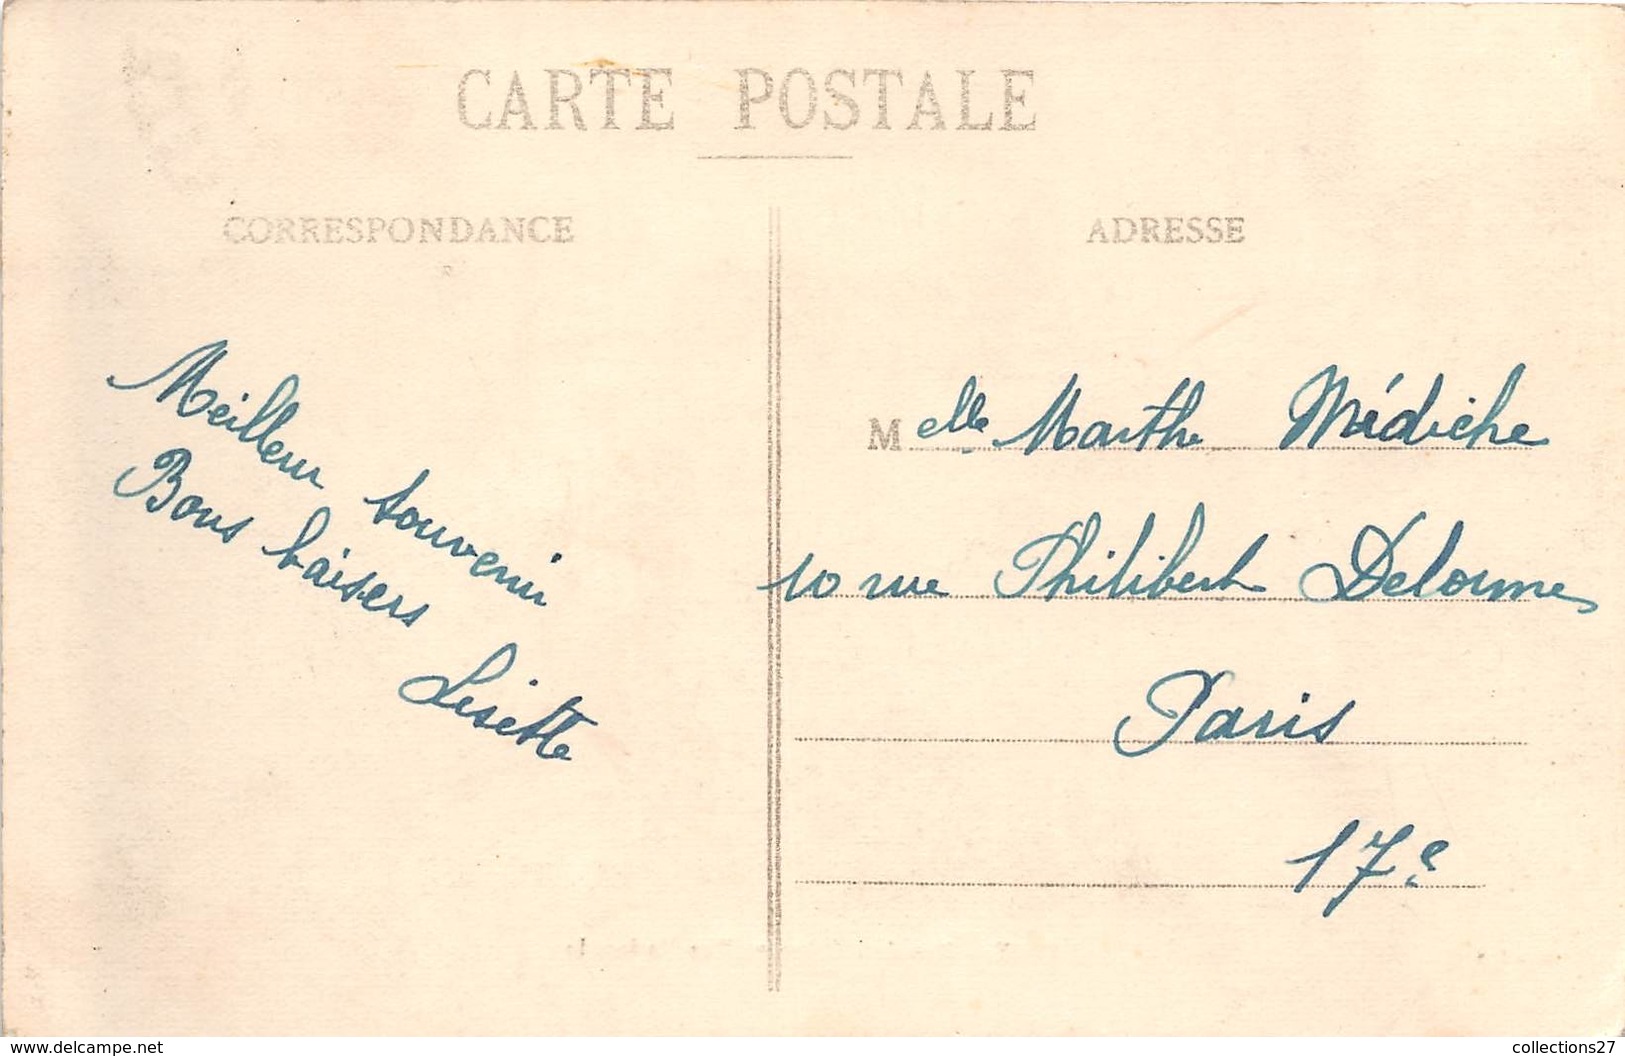 CARTE POSTALE
CORRESPONDANCE
ADRESSE
Meilleur souvenir
Bons baisers
Lisette
Melle Marthe Médiche
10 rue Philibert Delorme
Paris
17e
www.delcampe.net
collections27